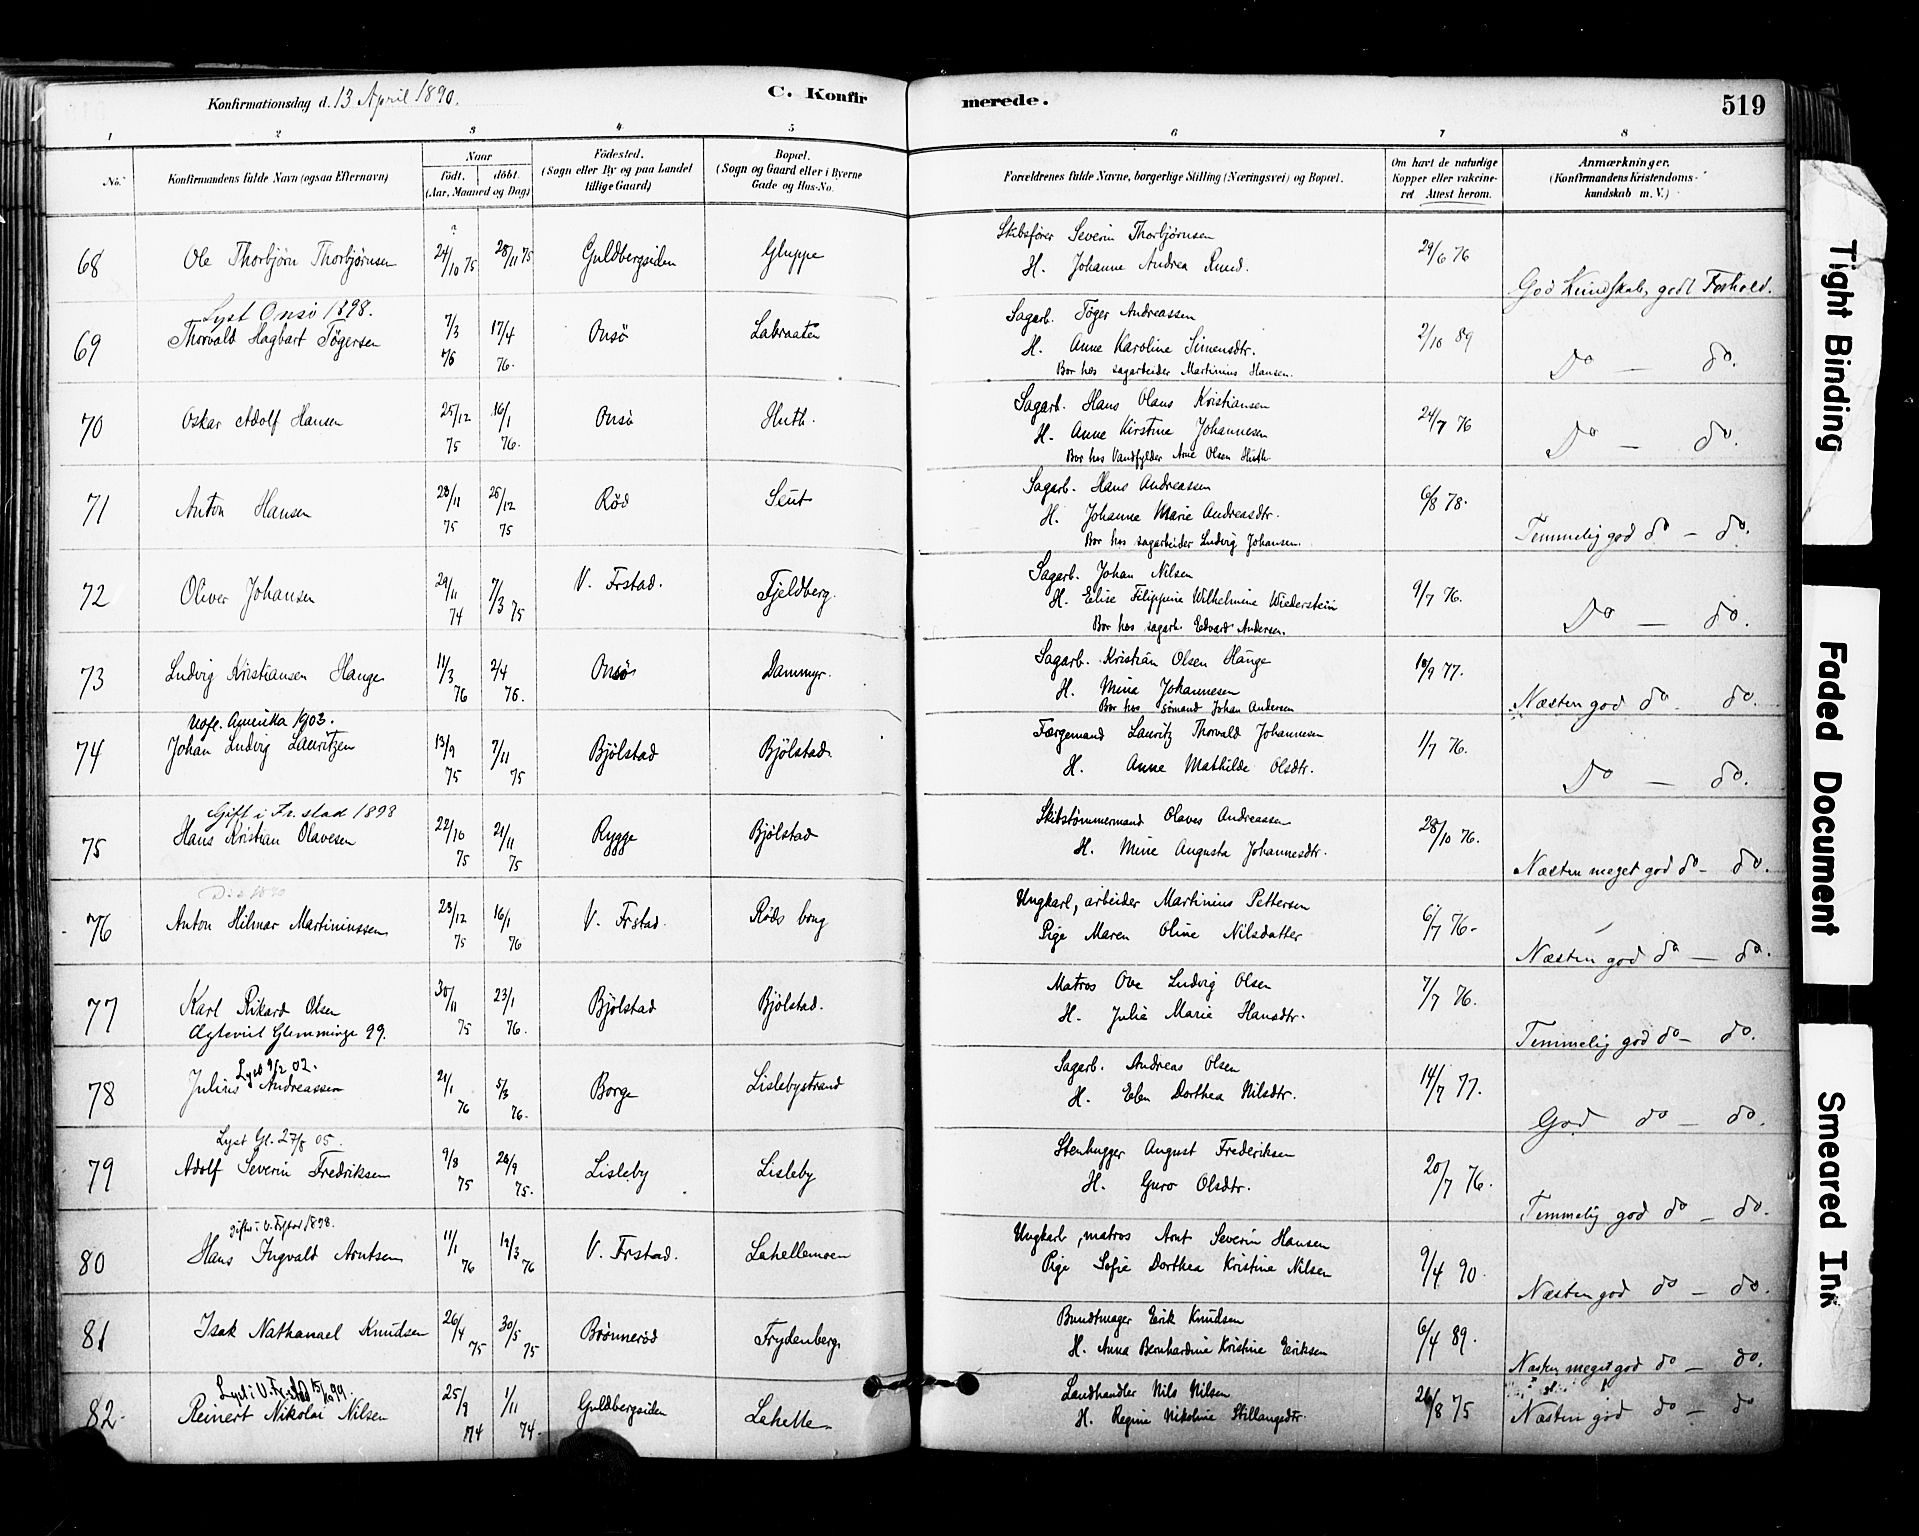 Konfirmationsdag d. 13 April 1890.
C. Konfirmerede.
519
1 2 3 4 5 6 7 8
No.
Konfirmandens fulde Navn (ogsaa Efternavn)
Naar
født. døbt.
(Aar, Maaned og Dag)
Födested.
(Sogn eller By og paa Landet
tillige Gaard)
Bopæl.
(Sogn og Gaard eller i Byerne
Gade og Hus-No.
Forældrenes fulde Navne, borgerlige Stilling (Næringsvei) og Bopæl.
Om havt de naturlige
Kopper eller vakcine-
ret Attest herom.
Anmærkninger.
(Konfirmandens Kristendoms-
kundskab m. V.)
68 Ole Thorbjörn Thorbjörnsen 24/10 75 28/11 75 Guldbergsiden Gluppe
Skibsfører Severin Thorbjörnsen
H. Johanne Andrea Rund.
29/6 76
God Kundskab, godt Forhold.
Lyst Onsö 1898.
69 Thorvald Hagbart Tögersen 7/3 76 17/4 76. Onsö Labraaten
Sagarb. Töger Andreassen
H. Anne Karoline Simensdtr.
Bor hos sagarbeider Martinius Hansen.
2/10 89
Do — do.
70 Oskar Adolf Hansen 25/12 75 16/1 76. Onsö Huth.
Sagarb. Hans Olaus Kristiansen
H. Anne Kirstine Johannesen
Bor hos Vandfylder Arne Olsen Huth
24/7 76
Do — do.
71 Anton Hansen 28/11 75 26/12 75 Röd Seut
Sagarb. Hans Andreassen
H. Johanne Marie Andreasdtr.
Bor hos sagarbeider Ludvig Johansen.
6/8 78.
Temmelig god do — do.
72 Oliver Johansen 29/11 74 7/3 75 V. Frstad. Fjeldberg.
Sagarb. Johan Nilsen
H. Elise Filippine Wilhelmine Wiederstein
Bor hos sagarb. Edvard Andersen.
9/7 76.
Do — do.
73 Ludvig Kristiansen Hauge 11/3 76 2/4 76. Onsö Dammyr.
Sagarb. Kristian Olsen Hauge
H. Mina Johannesen
Bor hos sömand Johan Andersen
10/9 77.
Næsten god do. do.
Uafl. Amerika 1903.
74 Johan Ludvig Lauritzen 13/9 75 7/11 75 Bjölstad Bjölstad.
Færgemand Lauritz Thorvald Johannesen
H. Anne Mathilde Olsdtr.
1/7 76.
Do — do.
Gift i Fr.stad 1898
75 Hans Kristian Olavesen 22/10 75 21/11 75 Rygge Bjölstad
Skibstömmermand Olaves Andreassen
H. Mine Augusta Johannesdtr.
28/10 76.
Næsten meget god do — do.
76 Anton Hilmar Martiniussen 23/12 75 16/1 76 V. Frstad. Röds brug
Ungkarl, arbeider Martinius Pettersen
Pige Maren Oline Nilsdatter
6/7 76.
Næsten god do — do.
77 Karl Rikard Olsen 30/11 75 23/1 76. Bjölstad Bjölstad.
Ægteviet Glemminge 99.
Matros Ove Ludvig Olsen
H. Julie Marie Hansdtr.
7/7 76.
Temmelig god do — do.
Lyst 9/2 02.
78 Julius Andreassen 21/1 76 5/3 76. Borge Lislebystrand
Sagarb. Andreas Olsen
H. Elen Dorthea Nilsdtr.
14/7 77.
God do — do.
Lyst Gl. 27/8 05.
79 Adolf Severin Fredriksen 9/8 75 26/9 75. Lisleby Lisleby
Stenhugger August Frederiksen
H. Guro Olsdtr.
20/7 76.
Temmelig god do — do.
gift i V. Frstad 1898.
80 Hans Ingvald Arntsen 11/1 76 12/3 76 V. Frstad. Lahellemoen
Ungkarl, matros Arnt Severin Hansen
Pige Sofie Dorthea Kristine Nilsen
9/4 90.
Næsten god do — do.
81 Isak Nathanael Knudsen 26/4 75 30/5 75 Brönneröd Frydenberg
Bundtmager Erik Knudsen
H. Anna Bernhardine Kristine Eriksen
6/4 89.
Næsten meget god do — do.
Lyst i V. Fr.stad 15/10 99.
82. Reinert Nikolai Nilsen 25/9 74 1/11 74. Guldbergsiden Lahelle
Landhandler Nils Nilsen
H. Regine Nikoline Stillangsdtr.
26/8 75
Næsten god do — do
Tight Binding
Faded Document
Smeared Ink